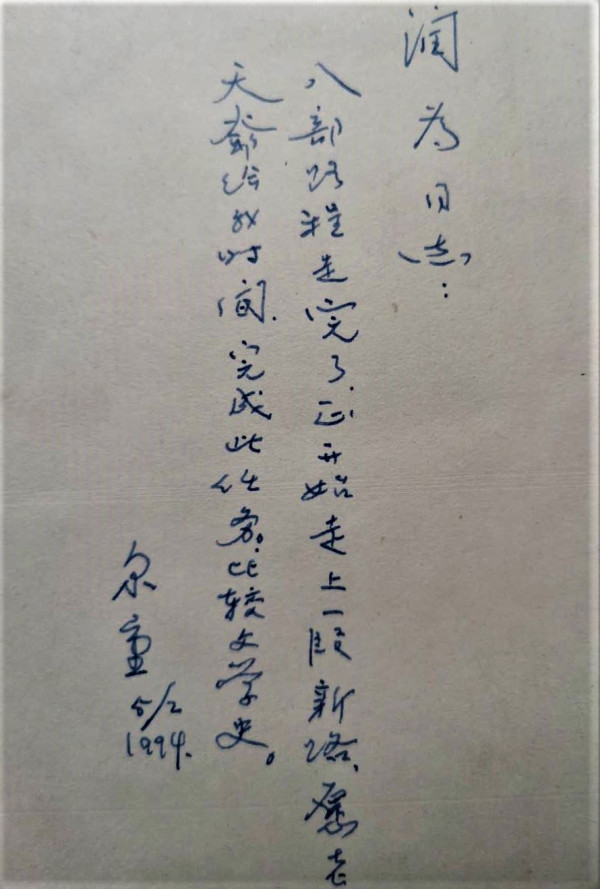 润为同志:
八部路程走完了,正开始走上一段新路,愿老
天爷给我时间,完成此任务:比较文学史。
泉童
5/2
1994.